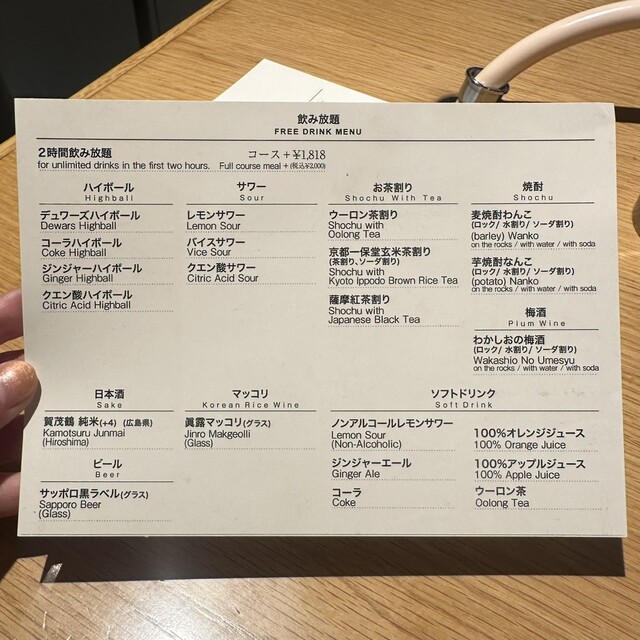 飲み放題
FREE DRINK MENU
2時間飲み放題 コース+¥1,818
for unlimited drinks in the first two hours. Full course meal + (税込¥2,000)
ハイボール
Highball
デュワーズハイボール
Dewars Highball
コーラハイボール
Coke Highball
ジンジャーハイボール
Ginger Highball
クエン酸ハイボール
Citric Acid Highball
サワー
Sour
レモンサワー
Lemon Sour
バイスサワー
Vice Sour
クエン酸サワー
Citric Acid Sour
お茶割り
Shochu With Tea
ウーロン茶割り
Shochu with
Oolong Tea
京都一保堂玄米茶割り
(茶割り、ソーダ割り)
Shochu with
Kyoto Ippodo Brown Rice Tea
薩摩紅茶割り
Shochu with
Japanese Black Tea
焼酎
Shochu
麦焼酎わんこ
(ロック/ 水割り/ ソーダ割り)
(barley) Wanko
on the rocks / with water / with soda
芋焼酎なんこ
(ロック/ 水割り/ ソーダ割り)
(potato) Nanko
on the rocks / with water / with soda
梅酒
Plum Wine
わかしおの梅酒
(ロック/ 水割り/ ソーダ割り)
Wakashio No Umesyu
on the rocks / with water / with soda
日本酒
Sake
賀茂鶴 純米(+4) (広島県)
Kamotsuru Junmai
(Hiroshima)
ビール
Beer
サッポロ黒ラベル(グラス)
Sapporo Beer
(Glass)
マッコリ
Korean Rice Wine
眞露マッコリ(グラス)
Jinro Makgeolli
(Glass)
ソフトドリンク
Soft Drink
ノンアルコールレモンサワー
Lemon Sour
(Non-Alcoholic)
ジンジャーエール
Ginger Ale
コーラ
Coke
100%オレンジジュース
100% Orange Juice
100%アップルジュース
100% Apple Juice
ウーロン茶
Oolong Tea